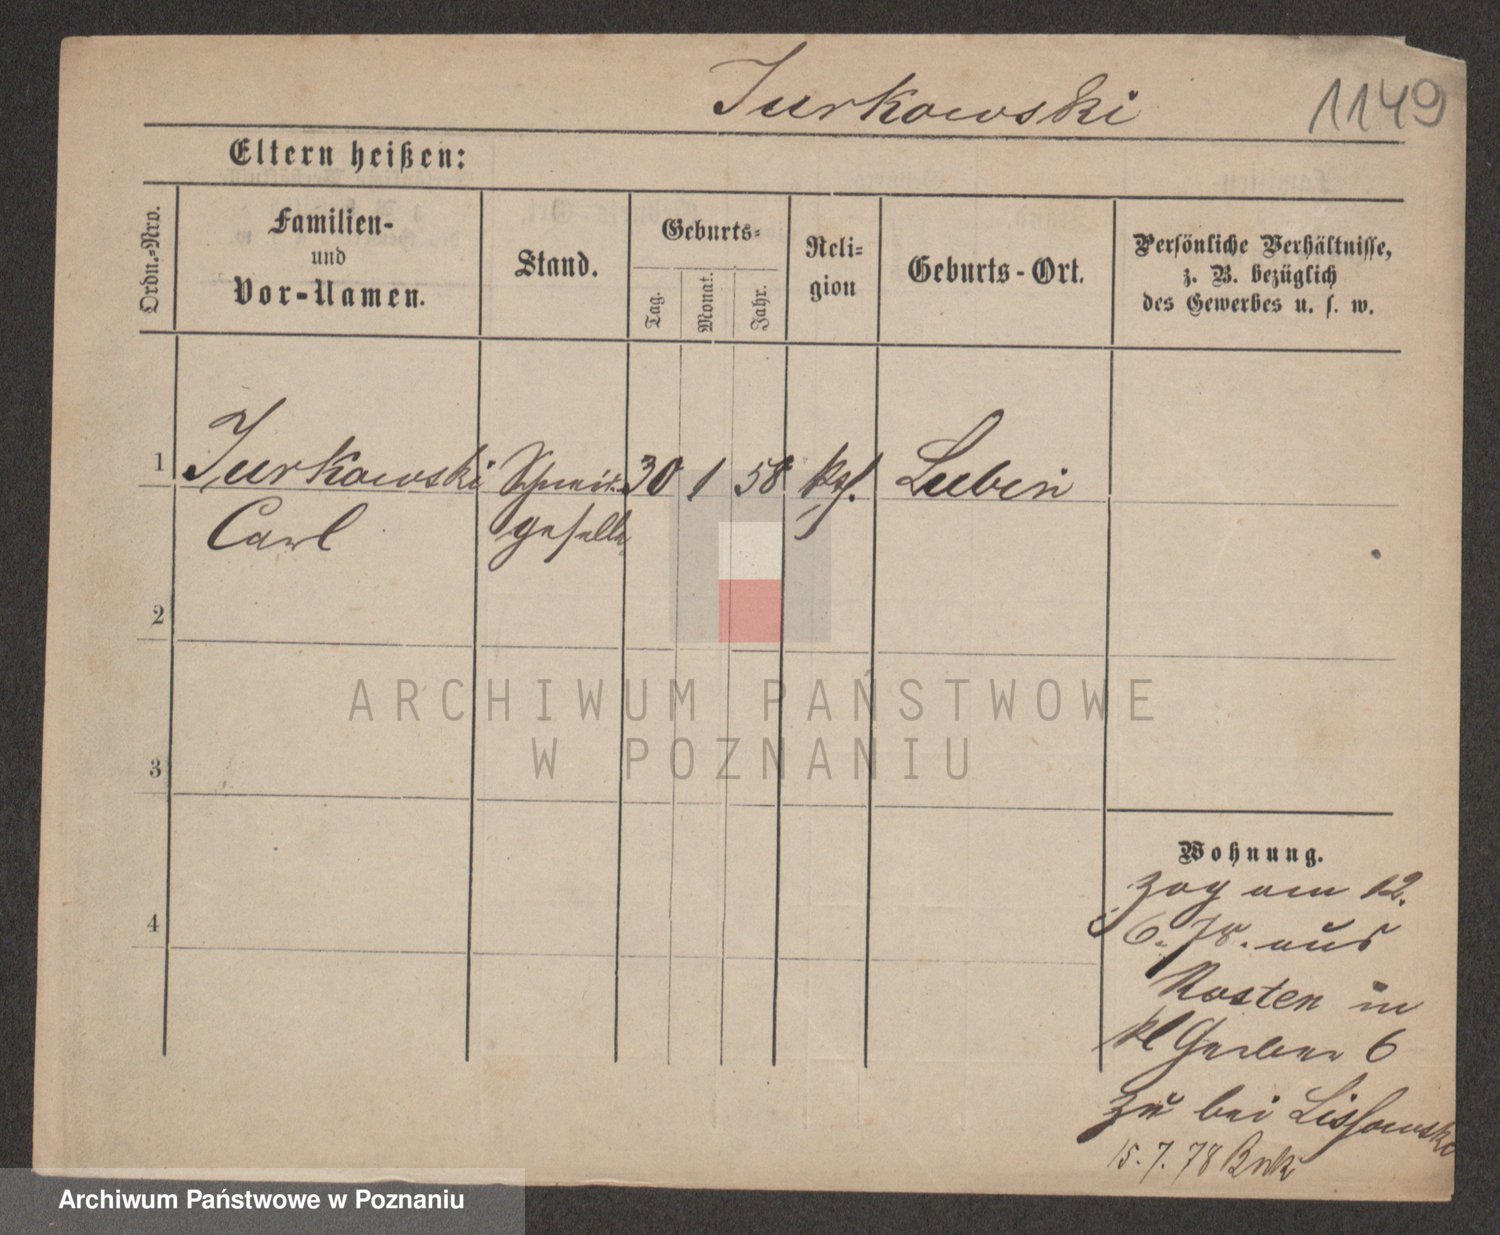 Jurkowski
1149
Eltern heißen:
Ordn.-Nro.
Familien-
und
Vor-Namen.
Stand.
Geburts-
Tag.
Monat.
Jahr.
Reli-
gion
Geburts-Ort.
Persönliche Verhältnisse,
z. B. bezüglich
des Gewerbes u. s. w.
1
Jurkowski
30
1
58
Lubin
Carl
geselle
2
ARCHIWUM PAŃSTWOWE
W POZNANIU
3
Wohnung.
zog am 12.
4
6. 78. aus
Kosten in
kl Gerber 6
zu bei Lissowski
15.7.78
Archiwum Państwowe w Poznaniu